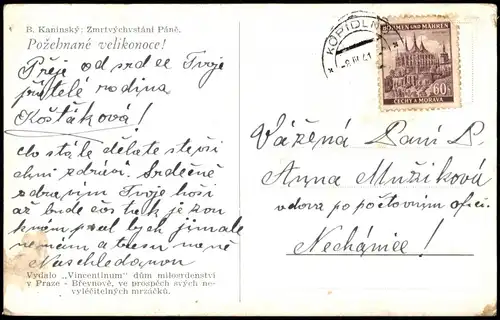 B. Kaninský: Zmrtvýchvstání Páně.
Požehnané velikonoce!
Přeje od srdce Tvoje
přátelé rodina
Košťáková!
Co stále děláte
zdrávi. Srdečně
zdravím Tvoje hoši
až bude čas tak je
nemám a
Naschledanou
Vydalo „Vincentinum" dům milosrdenství
v Praze - Břevnově, ve prospěch svých ne-
vyléčitelných mrzáčků.
KOPIDLNO
BÖHMEN UND MÄHREN
60
ČECHY A MORAVA
Vážená Paní P.
Anna Mužíková
vdova po poštovním ofici.
Nechanice!